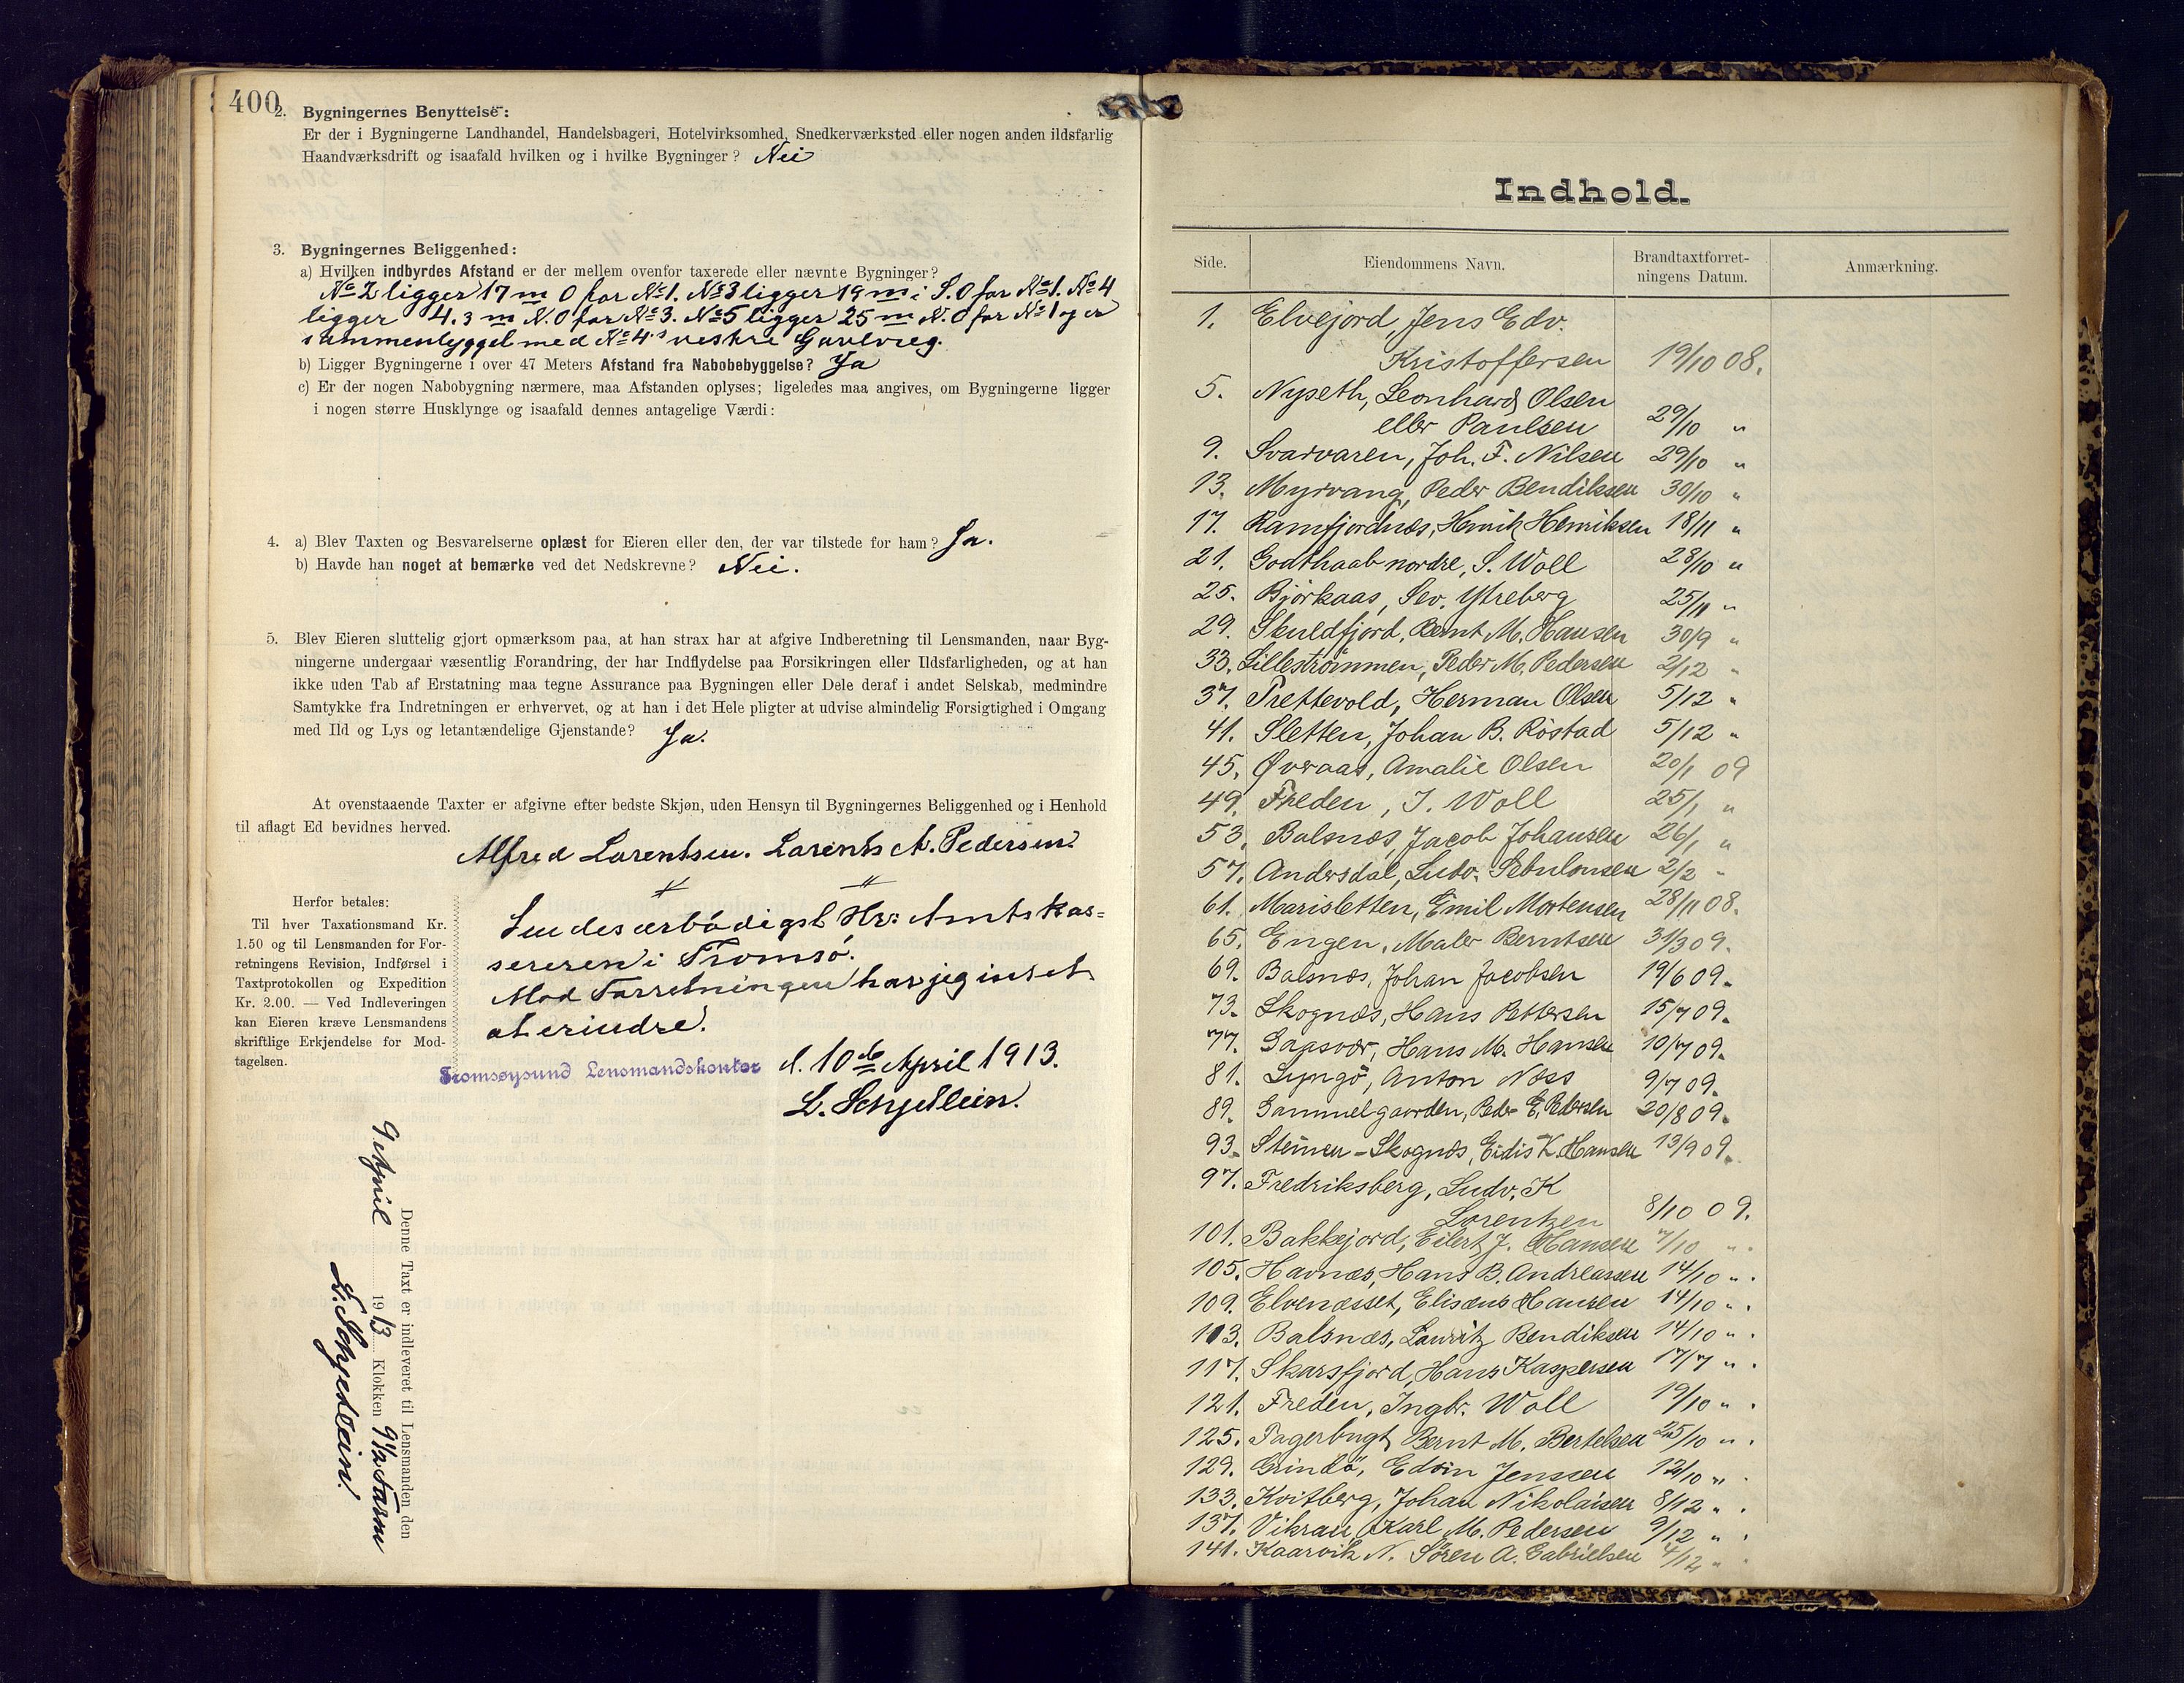 400
2. Bygningernes Benyttelse:
Er der i Bygningerne Landhandel, Handelsbageri, Hotelvirksomhed, Snedkerværksted eller nogen anden ildsfarlig
Haandværksdrift og isaafald hvilken og i hvilke Bygninger? Nei
3. Bygningernes Beliggenhed:
a) Hvilken indbyrdes Afstand er der mellem ovenfor taxerede eller nævnte Bygninger?
No 2 ligger 17 m O for No 1. No 3 ligger 19 m i S.O for No 1. No 4
ligger 4.3 m N.O for No 3. No 5 ligger 25 m N.O for No 1 og er
sammenbygget med No 4's vestre Gavlvæg.
b) Ligger Bygningerne i over 47 Meters Afstand fra Nabobebyggelse? Ja
c) Er der nogen Nabobygning nærmere, maa Afstanden oplyses; ligeledes maa angives, om Bygningerne ligger
i nogen større Husklynge og isaafald dennes antagelige Værdi:
4. a) Blev Taxten og Besvarelserne oplæst for Eieren eller den, der var tilstede for ham? Ja.
b) Havde han noget at bemærke ved det Nedskrevne? Nei.
5. Blev Eieren sluttelig gjort opmærksom paa, at han strax har at afgive Indberetning til Lensmanden, naar Byg-
ningerne undergaar væsentlig Forandring, der har Indflydelse paa Forsikringen eller Ildsfarligheden, og at han
ikke uden Tab af Erstatning maa tegne Assurance paa Bygningen eller Dele deraf i andet Selskab, medmindre
Samtykke fra Indretningen er erhvervet, og at han i det Hele pligter at udvise almindelig Forsigtighed i Omgang
med Ild og Lys og letantændelige Gjenstande? Ja.
At ovenstaaende Taxter er afgivne efter bedste Skjøn, uden Hensyn til Bygningernes Beliggenhed og i Henhold
til aflagt Ed bevidnes herved.
Alfred Lorentsen. Lorents A. Pedersen.
Herfor betales:
Til hver Taxationsmand Kr.
1.50 og til Lensmanden for For-
retningens Revision, Indførsel i
Taxtprotokollen og Expedition
Kr. 2.00. — Ved Indleveringen
kan Eieren kræve Lensmandens
skriftlige Erkjendelse for Mod-
tagelsen.
Sendes ærbödigst Hr: Amtskas=
sereren i Tromsö.
Mod Forretningen har jeg intet
at erindre.
Tromsøysund Lensmandskontor d. 10de April 1913.
L. Schjelein.
Denne Taxt er indleveret til Lensmanden den
9 April 1913 Klokken 9½ Form
L. Schjelein.
Indhold.
Side. Eiendommens Navn. Brandtaxtforret-
ningens Datum. Anmærkning.
1. Elvejord, Jens Edv.
Kristoffersen 19/10 08.
5. Nyseth, Leonhard Olsen
eller Paulsen 29/10 "
9. Svarvaren, Joh. F. Nilsen 29/10 "
13. Myrvang, Peder Bendiksen 30/10 "
17. Ramfjordnæs, Henrik Henriksen 18/11 "
21. Godthaab nordre, S. Woll 28/10 "
25. Björkaas, Sev. Ytreberg 25/11 "
29. Skuldfjord, Bernt M. Hansen 30/9 "
33. Lilleströmmen, Peder M. Pedersen 2/12 "
37. Prettevold, Herman Olsen 5/12 "
41. Sletten, Johan B. Röstad 5/12 "
45. Øveraas, Amalie Olsen 20/1 09
49. Freden, I. Woll 25/1 "
53. Balsnæs, Jacob Johansen 26/1 "
57. Andersdal, Ludv. Sebulonsen 2/2 "
61. Marisletten, Emil Mortensen 28/11 08.
65. Engen, Maler Berntsen 31/3 09.
69. Balsnæs, Johan Jacobsen 19/6 09.
73. Skognæs, Hans Pettersen 15/7 09.
77. Gaasvær, Hans M. Hansen 10/7 09.
81. Lyngö, Anton Næss 9/7 09.
89. Gammelgaarden, Peder E. Pedersen 20/8 09.
93. Steinen - Skognæs, Eidis K. Hansen 13/9 09.
97. Fredriksberg, Ludv. K
Lorentzen 8/10 09.
101. Bakkejord, Eilert J. Hansen 7/10 ".
105. Havnæs, Hans B. Andreassen 14/10 ".
109. Elvenæsset, Elisæus Hansen 14/10 ".
113. Balsnæs, Lauritz Bendiksen 14/10 ".
117. Skarsfjord, Hans Kaspersen 17/7 ".
121. Freden, Ingbr. Woll 19/10 ".
125. Fagerbugt, Bernt M. Bertelsen 25/10 ".
129. Grindö, Edvin Jenssen 12/10 ".
133. Kvitberg, Johan Nikolaisen 8/12 ".
137. Vikran, Karl M. Pedersen 9/12 ".
141. Kaarvik N. Sören A. Gabrielsen 4/12 "